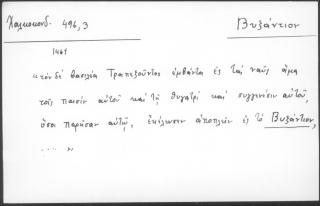 Χαλκοκονδ. 496,3
Βυζάντιον
1461
«τὸν δὲ βασιλέα Τραπεζοῦντος ἐμβάντα ἐς τὰς ναῦς ἅμα
τοῖς παισὶν αὐτοῦ καὶ τῇ θυγατρὶ καὶ συγγενέσιν αὐτοῦ,
ὅσοι παρῆσαν αὐτῷ, ἐκέλευσεν ἀποπλεῖν ἐς τὸ Βυζάντιον,
.... »